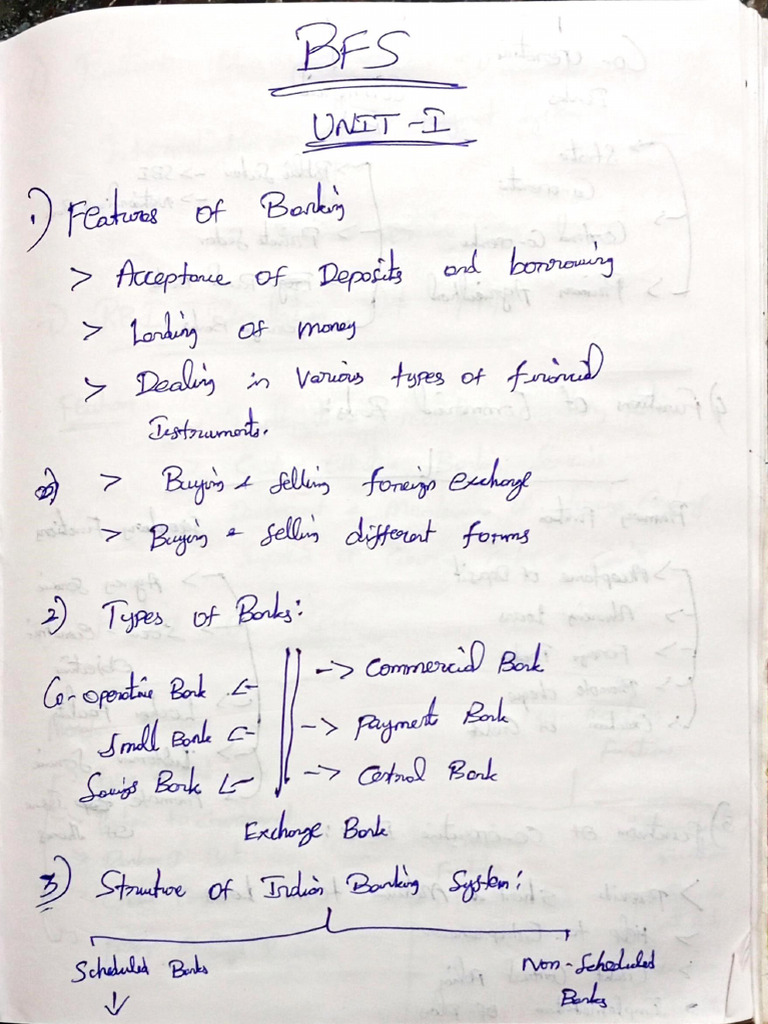 BFS
UNIT-I
1) Features of Banking
> Acceptance of Deposits and borrowing
> Lending of money
> Dealing in various types of financial
Instruments.
> Buying & selling foreign exchange
> Buying & selling different forms
2) Types of Banks:
-> Commercial Bank
Co-operative Bank <-
-> Payment Bank
Small Bank <-
-> Central Bank
Savings Bank <-
Exchange Bank
3) Structure of Indian Banking System:
Scheduled Banks
Non-Scheduled
Banks